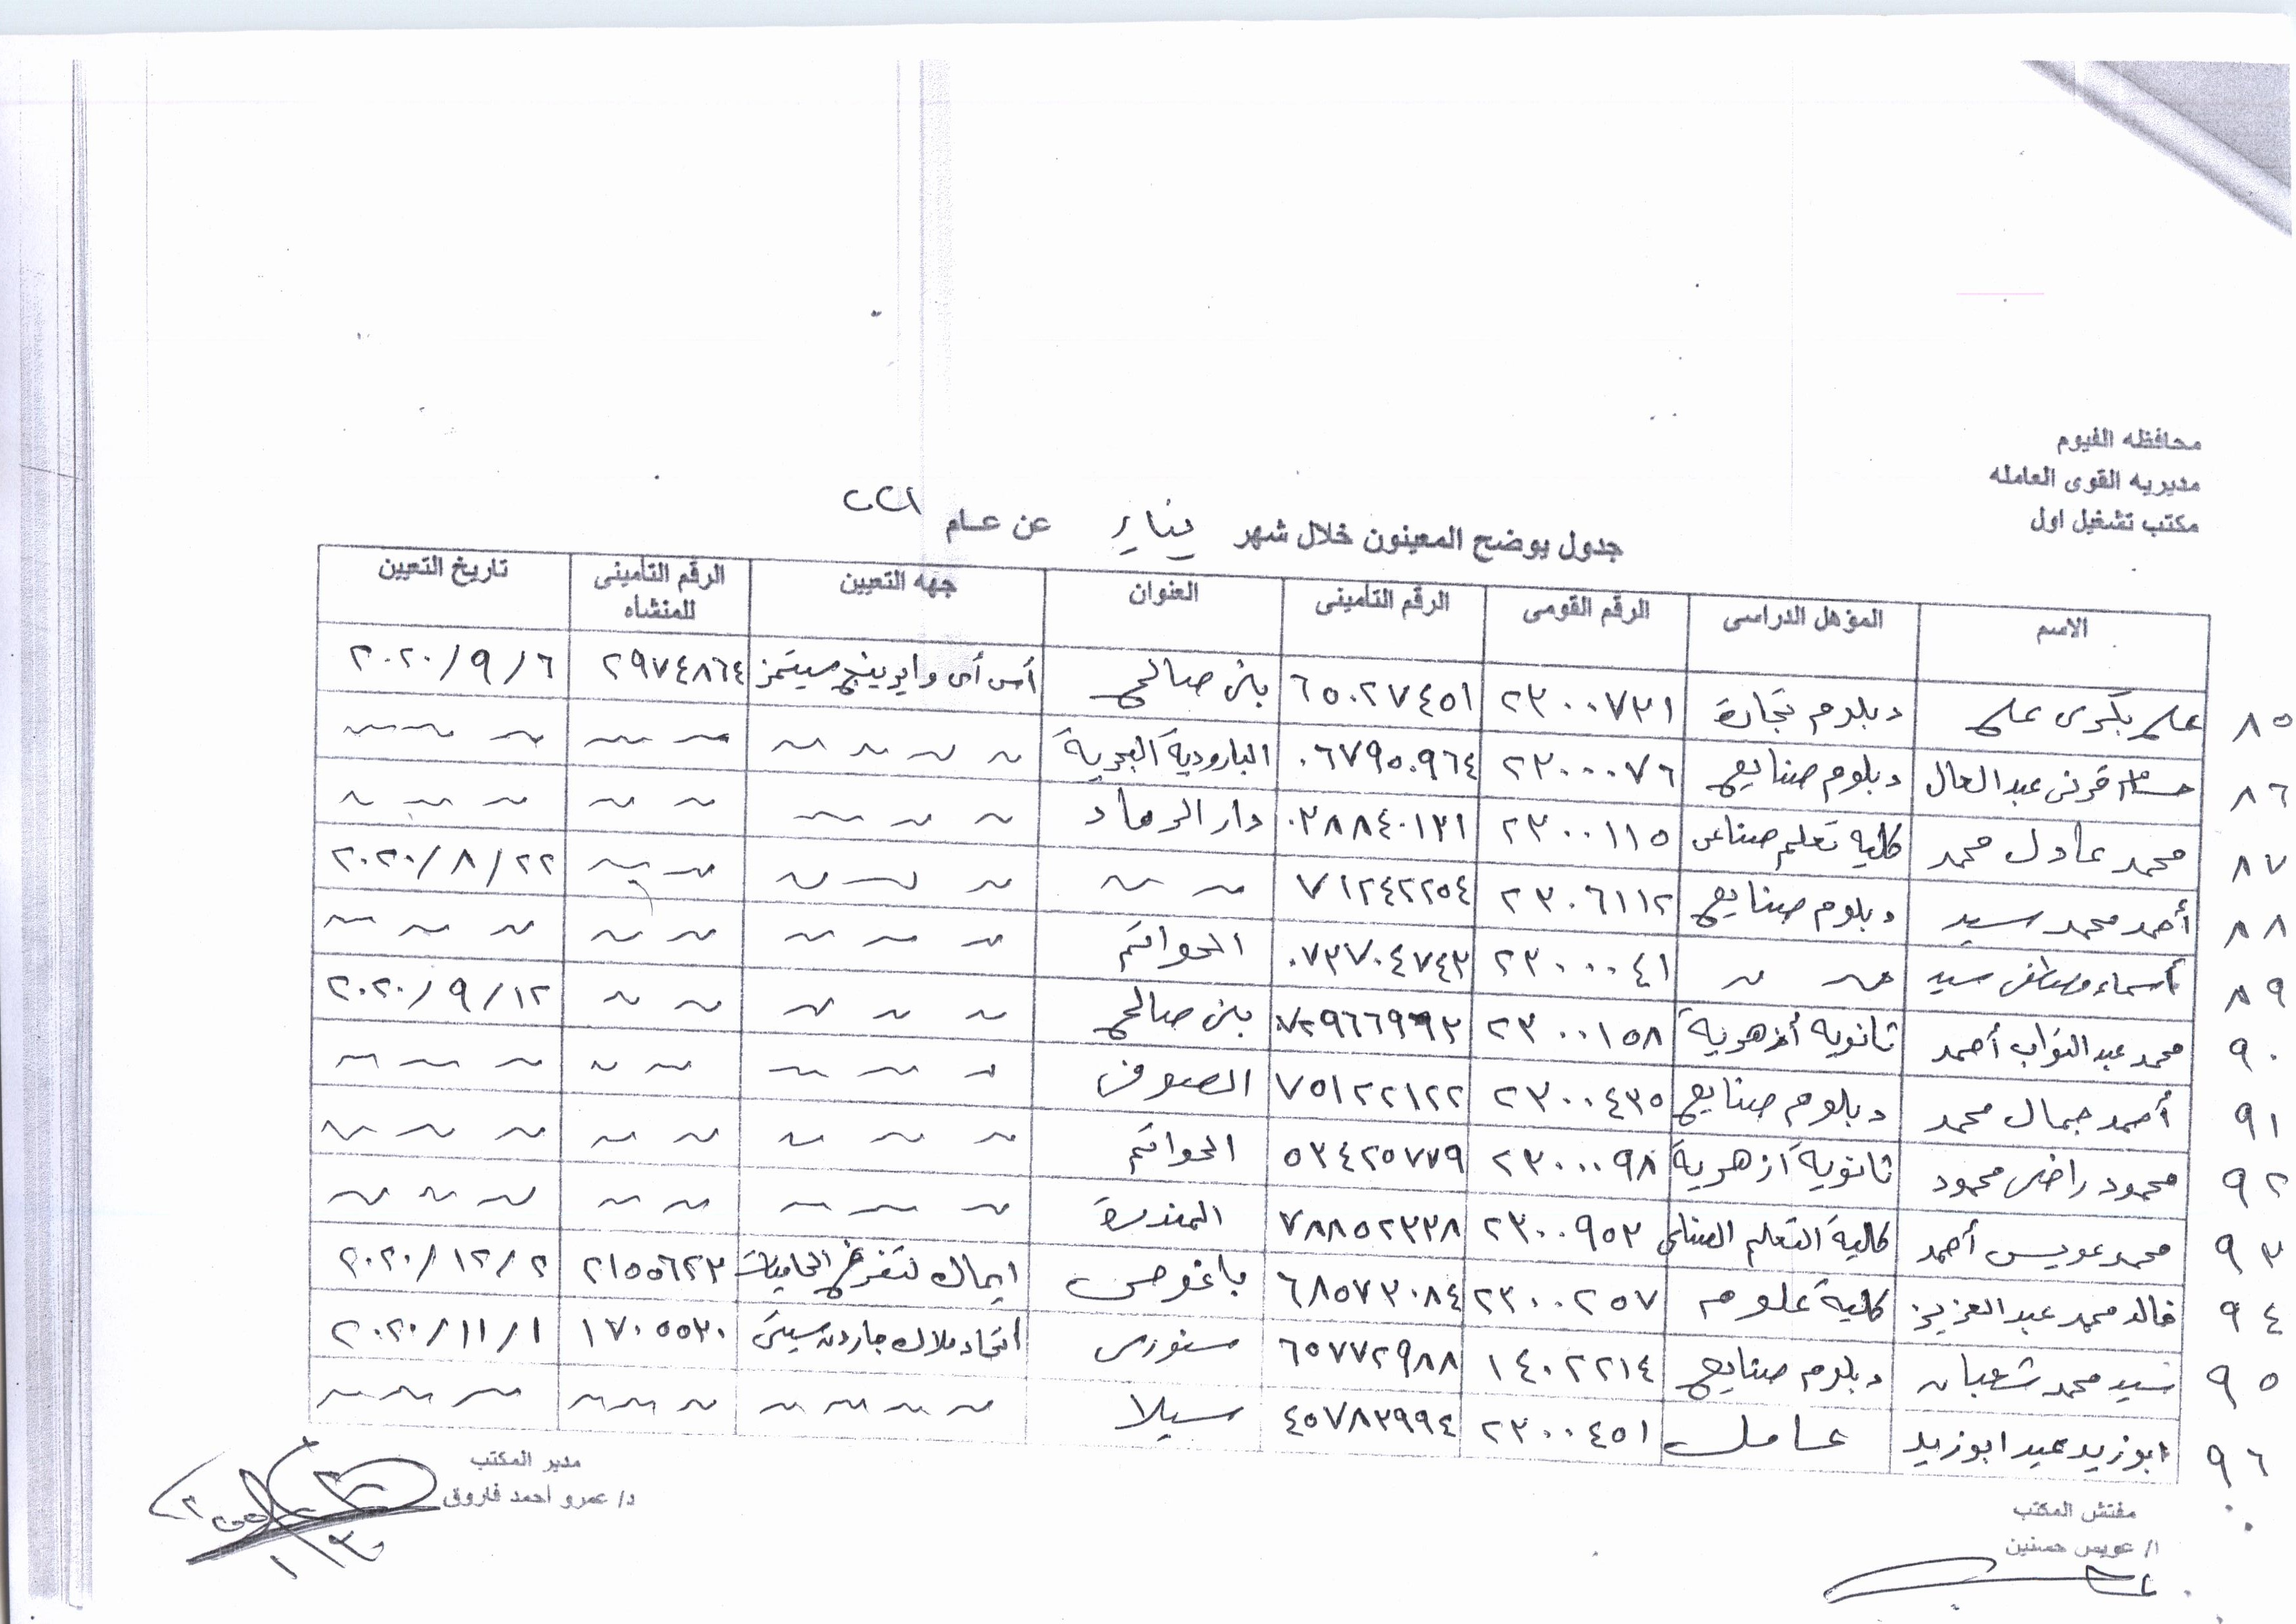 محافظه الفيوم
مديريه القوى العامله
مكتب تشغيل اول
جدول يوضح المعينون خلال شهر يناير عن عام ٢٠٢١
الاسم المؤهل الدراسى الرقم القومى الرقم التأمينى العنوان جهه التعيين الرقم التأمينى للمنشاه تاريخ التعيين
٨٥ على بكرى على دبلوم تجارة ٢٣٠٠٧٣١ ٦٥٠٢٧٤٥١ بنى صالح أس أى وايرينج سيستمز ٢٩٧٤٨٦٤ ٢٠٢٠/٩/٦
٨٦ حسام قرنى عبد العال دبلوم صنايع ٢٣٠٠٠٧٦ ٠٦٧٩٥٠٩٦٤ البارودية البحرية ~ ~ ~ ~ ~ ~ ~ ~ ~ ~
٨٧ محمد عادل محمد كليه تعليم صناعى ٢٣٠٠١١٥ ٠٣٨٨٤٠١٣١ دار الرماد ~ ~ ~ ~ ~ ~ ~ ~
٨٨ أحمد محمد سيد دبلوم صنايع ٢٣٠٦١١٢ ٧١٢٤٢٢٥٤ ~ ~ ~ ~ ~ ~ ~ ٢٠٢٠/٨/٢٢
٨٩ أسماء مصطفى سيد ~ ~ ٢٣٠٠٠٤١ ٠٧٣٧٠٤٧٤٣ الحواتم ~ ~ ~ ~ ~ ~ ~ ~
٩٠ محمد عبد التواب أحمد ثانويه أزهرية ٢٣٠٠١٥٨ بنى صالح ~ ~ ~ ~ ~ ٢٠٢٠/٩/١٢
٩١ أحمد جمال محمد دبلوم صنايع ٢٣٠٠٤٣٥ ٧٥١٢٢١٢٢ الصوفى ~ ~ ~ ~ ~ ~ ~ ~
٩٢ محمود راضى محمود ثانوية ازهرية ٢٣٠٠٠٩٨ ٥٣٤٢٥٧٧٩ الحواتم ~ ~ ~ ~ ~ ~ ~ ~
٩٣ محمد عويس أحمد كلية التعليم الصناعى ٢٣٠٠٩٥٣ ٧٨٨٥٢٣٣٨ المندرة ~ ~ ~ ~ ~ ~ ~ ~
٩٤ خالد محمد عبد العزيز كلية علوم ٢٣٠٠٢٥٧ ٦٨٥٧٣٠٨٤ باغوص ايمال ٢١٥٥٦٢٣ ٢٠٢٠/١٢/٢
٩٥ سيد محمد شعبان دبلوم صنايع ١٤٠٢٢١٤ ٦٥٧٧٢٩٨٨ سنورس اتحاد ملاك جاردن سيتى ١٧٠٥٥٣٠ ٢٠٢٠/١١/١
٩٦ ابوزيد عيد ابوزيد عامل ٢٣٠٠٤٥١ ٤٥٧٨٣٩٩٤ سيلا ~ ~ ~ ~ ~ ~ ~ ~ ~ ~
مفتش المكتب
ا/ عويس حسنين
مدير المكتب
د/ عمرو احمد فاروق